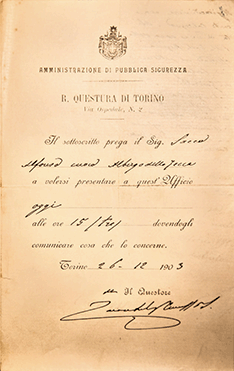 AMMINISTRAZIONE DI PUBBLICA SICUREZZA
R. QUESTURA DI TORINO
Via Ospedale, N. 2
Il sottoscritto prega il Sig.
Albergo della Zecca
a volersi presentare a quest'Uffizio
oggi
alle ore 15 dovendogli
comunicare cosa che lo concerne.
Torino 26-12 1903
Il Questore